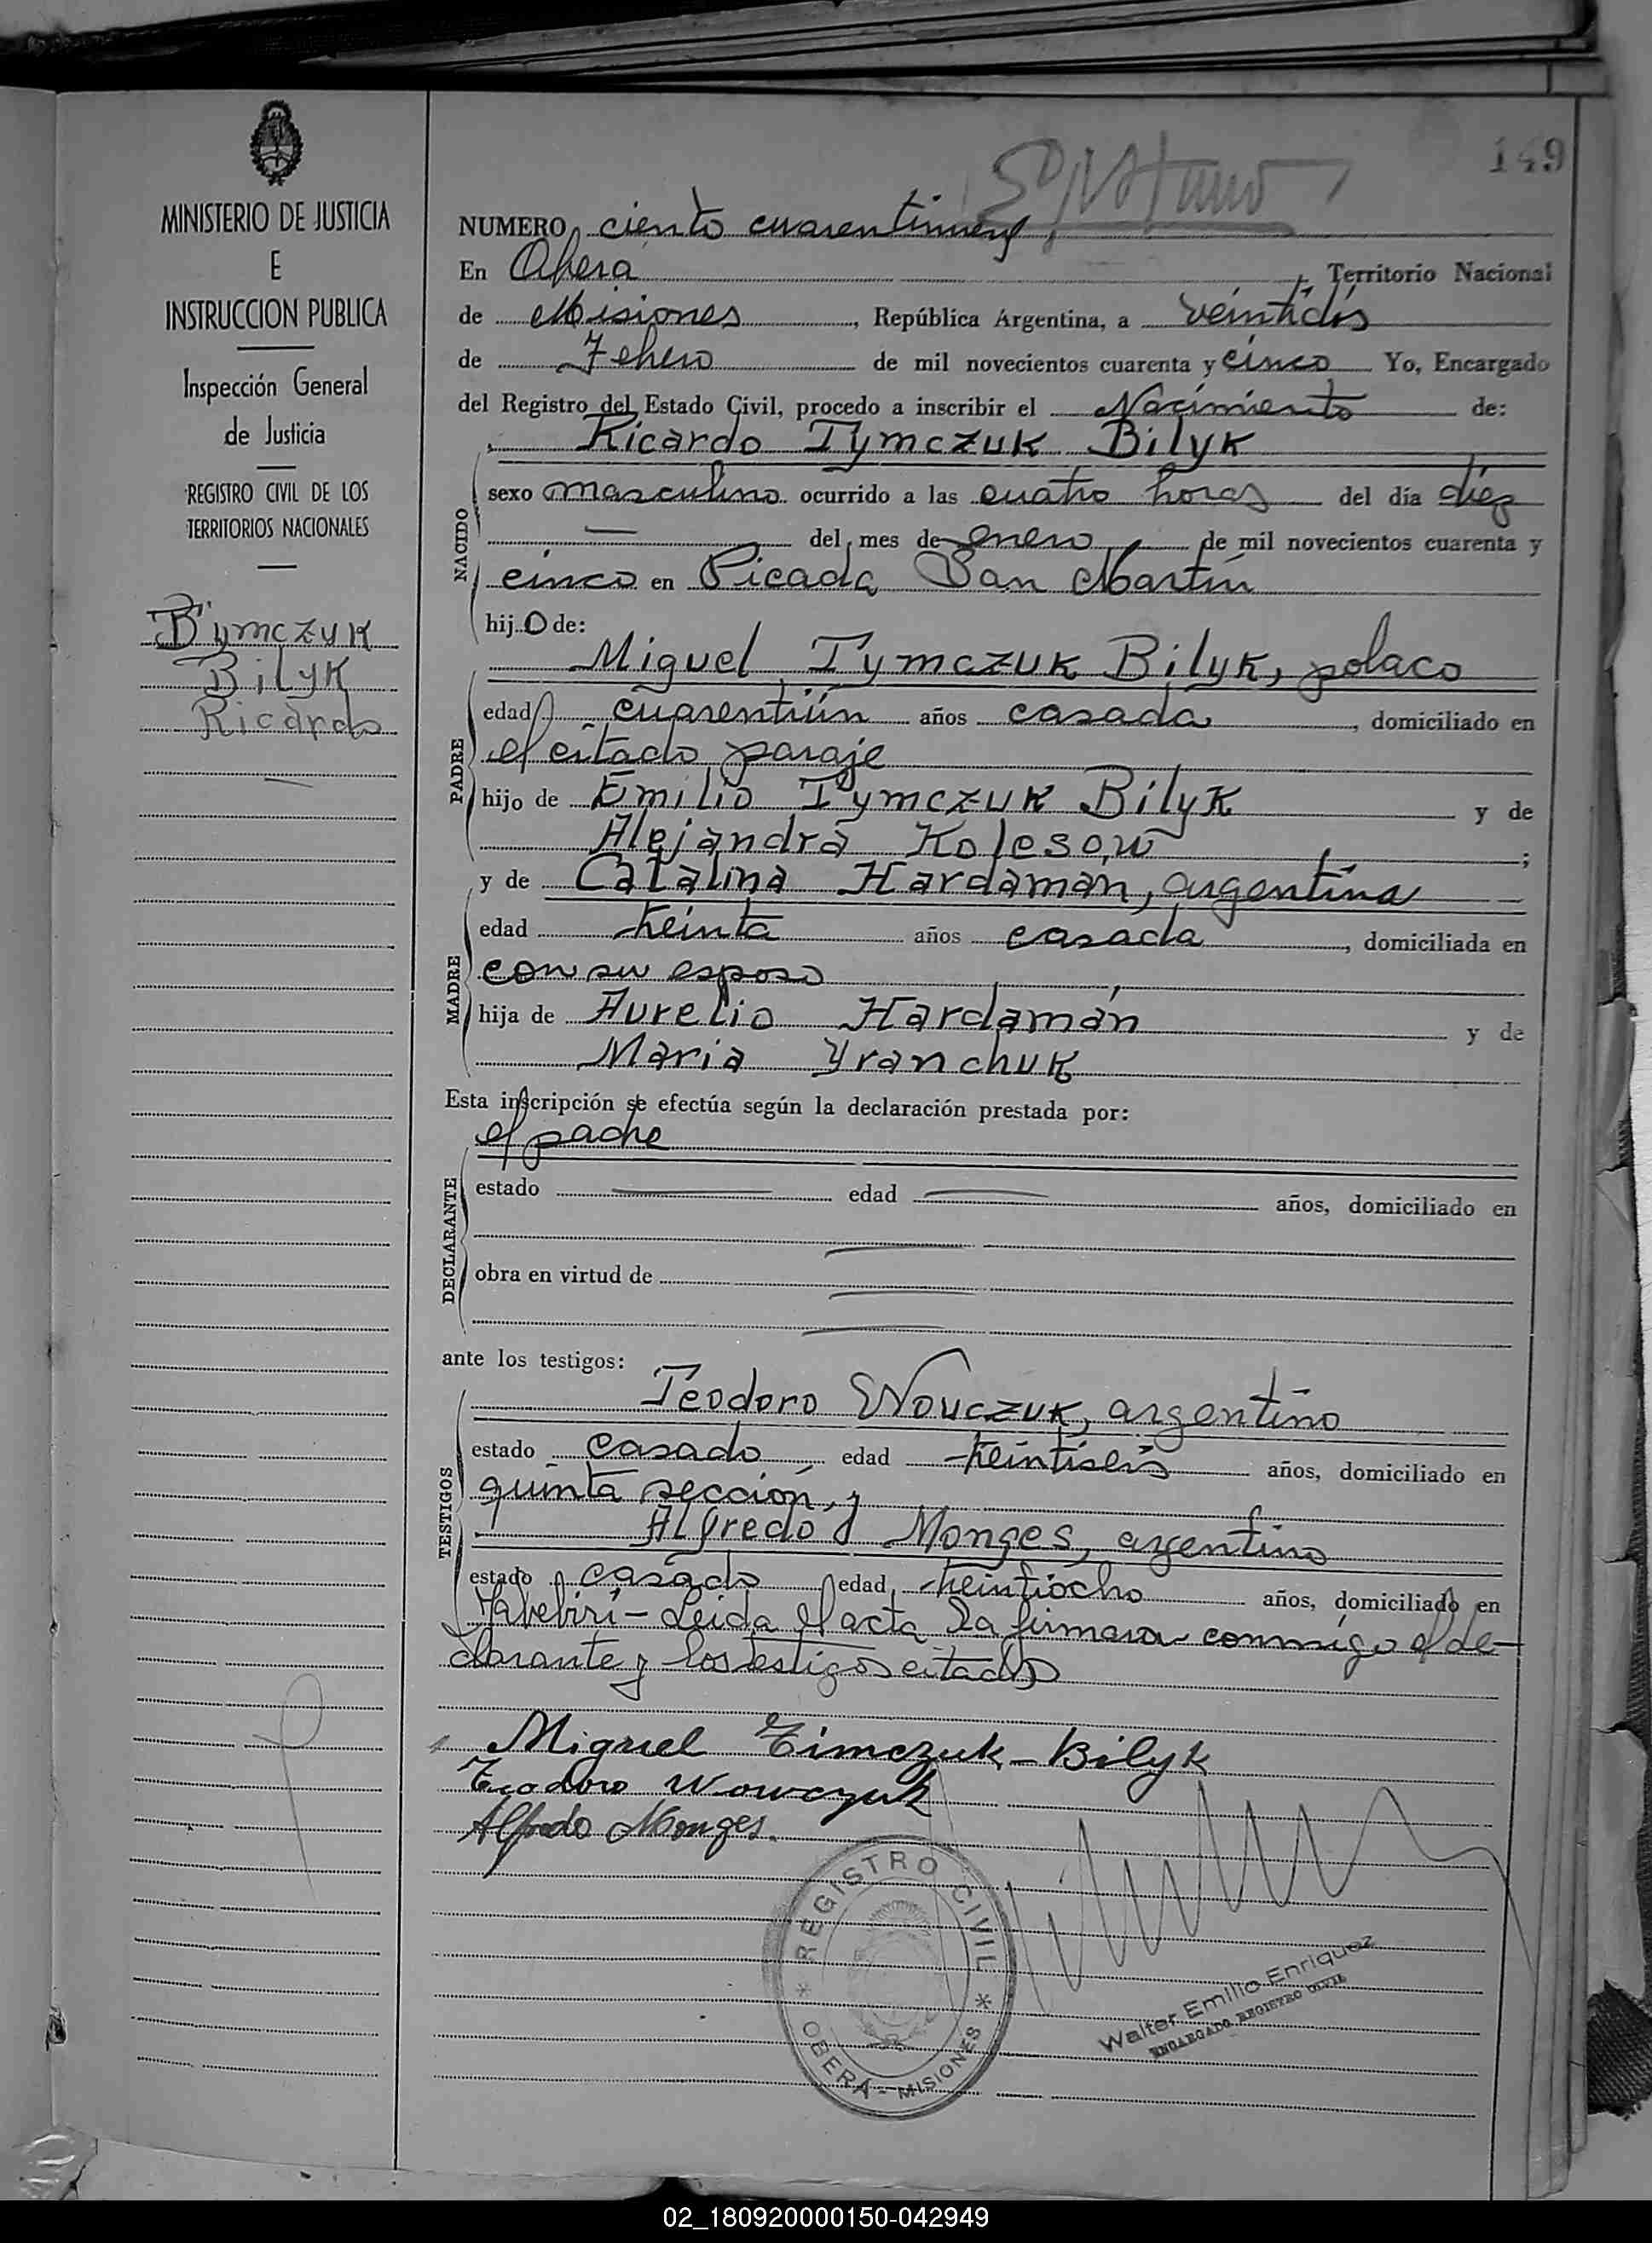 149
MINISTERIO DE JUSTICIA
E
INSTRUCCION PUBLICA
Inspección General
de Justicia
REGISTRO CIVIL DE LOS
TERRITORIOS NACIONALES
Bymczuk
Bilyk
Ricardo
NUMERO ciento cuarentinueve
En Obera Territorio Nacional
de Misiones, República Argentina, a veintidós
de Febrero de mil novecientos cuarenta y cinco Yo, Encargado
del Registro del Estado Civil, procedo a inscribir el Nacimiento de:
Ricardo Tymczuk Bilyk
NACIDO
sexo masculino ocurrido a las cuatro horas del día diez
del mes de enero de mil novecientos cuarenta y
cinco en Picada San Martín
hijo de:
Miguel Tymczuk Bilyk, polaco
PADRE
edad cuarentiún años casada, domiciliado en
el citado paraje
hijo de Emilio Tymczuk Bilyk y de
Alejandra Kolesow;
y de Catalina Hardaman, argentina
MADRE
edad treinta años casada, domiciliada en
con su esposo
hija de Aurelio Hardamán y de
Maria Yranchuk
Esta inscripción se efectúa según la declaración prestada por:
el padre
DECLARANTE
estado edad años, domiciliado en
obra en virtud de
ante los testigos:
TESTIGOS
Teodoro Wouczuk, argentino
estado casado edad treintiseis años, domiciliado en
quinta sección, y
Alfredo Monges, argentino
estado casado edad treintiocho años, domiciliado en
Yabebirí - Leida el acta la firmaron conmigo el de-
clarante y los testigos citados
Miguel Timczuk-Bilyk
Teodoro Wowczuk
Alfredo Monges.
REGISTRO CIVIL
OBERÁ - MISIONES
Walter Emilio Enriquez
ENCARGADO REGISTRO CIVIL
02_180920000150-042949